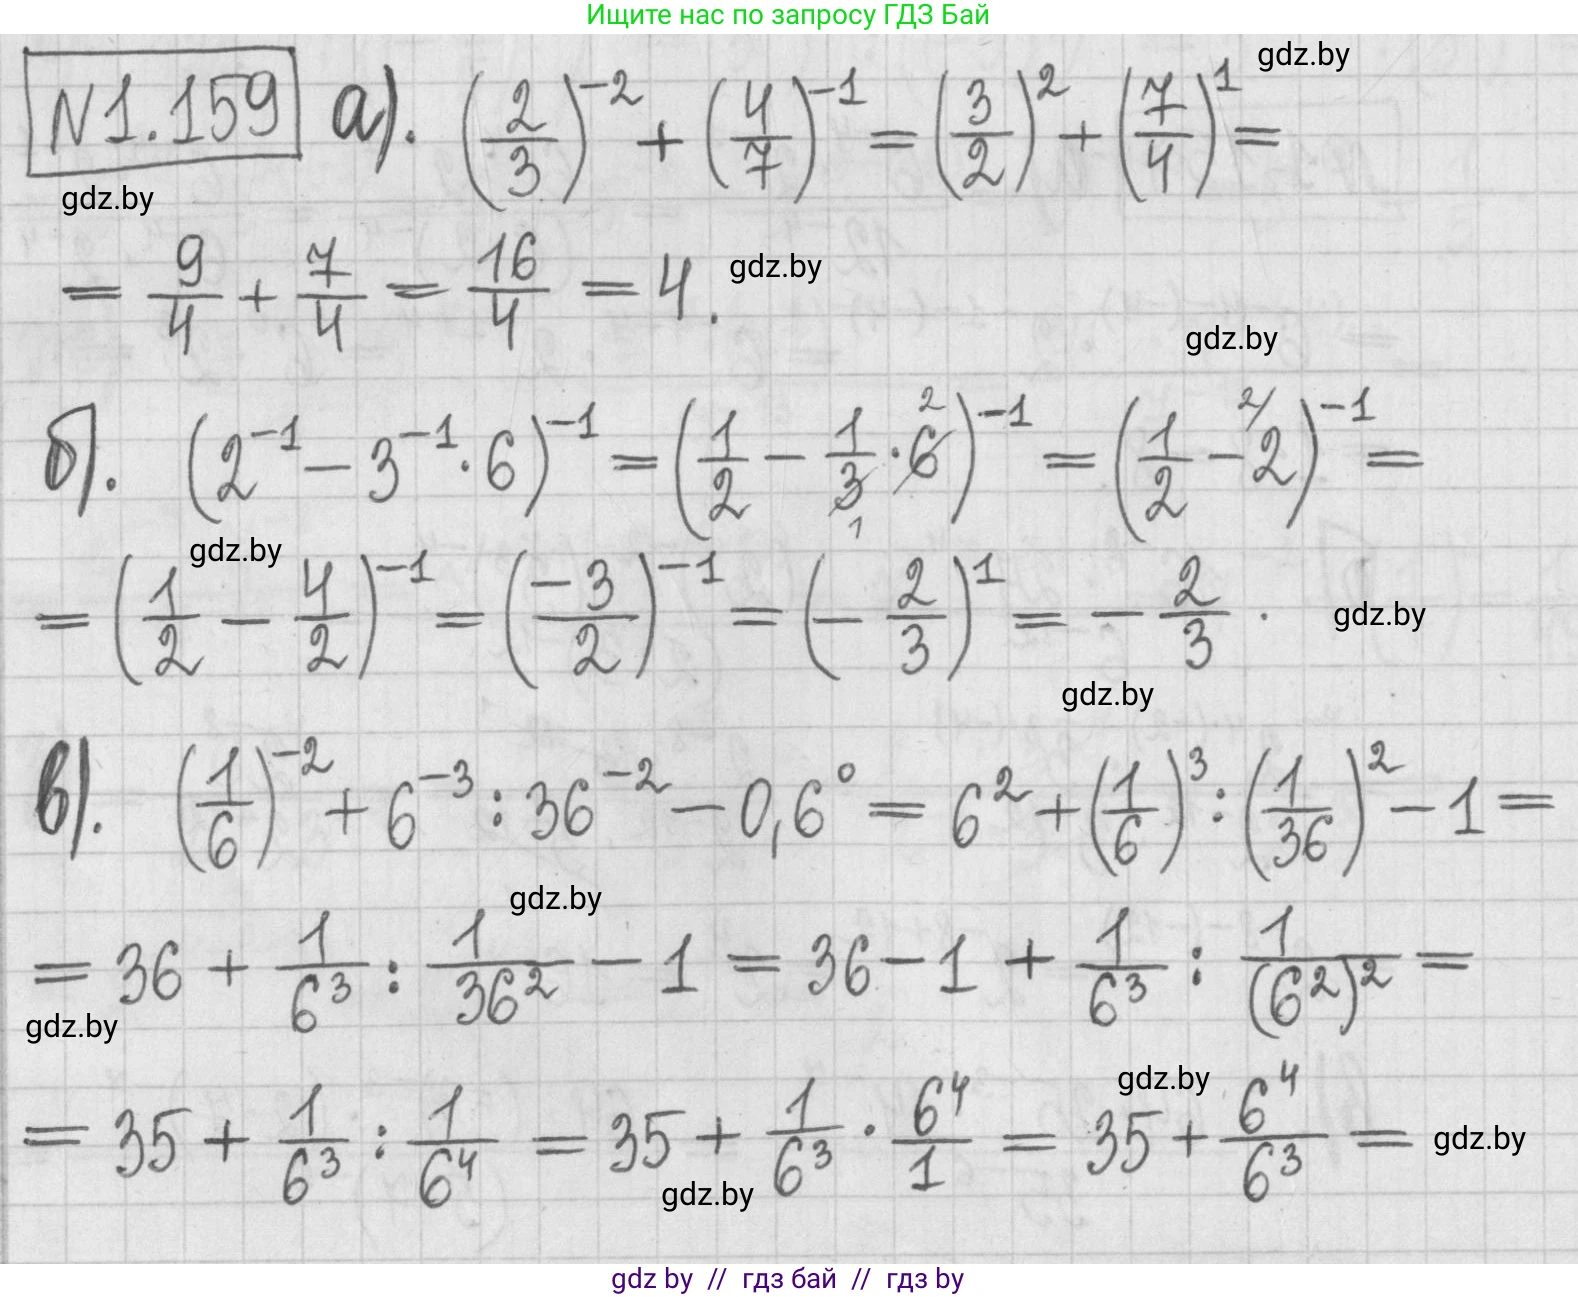 Ищите нас по запросу ГДЗ Бай
gdz.by
N1.159 а). (2/3)^-2 + (4/7)^-1 = (3/2)^2 + (7/4)^1 =
gdz.by
= 9/4 + 7/4 = 16/4 = 4.
gdz.by
gdz.by
б). (2^-1 - 3^-1 · 6)^-1 = (1/2 - 1/3 · 6)^-1 = (1/2 - 2)^-1 =
gdz.by
= (1/2 - 4/2)^-1 = (-3/2)^-1 = (- 2/3)^1 = - 2/3 .
gdz.by
gdz.by
в). (1/6)^-2 + 6^-3 : 36^-2 - 0,6^0 = 6^2 + (1/6)^3 : (1/36)^2 - 1 =
gdz.by
= 36 + 1/6^3 : 1/36^2 - 1 = 36 - 1 + 1/6^3 : 1/(6^2)^2 =
gdz.by
gdz.by
= 35 + 1/6^3 : 1/6^4 = 35 + 1/6^3 · 6^4/1 = 35 + 6^4/6^3 =
gdz.by
gdz.by
gdz by // гдз бай // гдз by